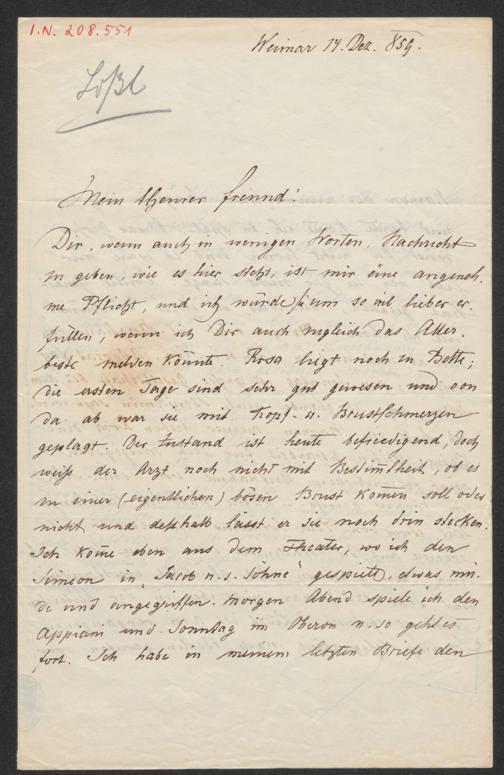 I.N. 208.551
Weimar 14. Dez. 859.
Lößl
Mein theurer Freund!
Dir, wenn auch in wenigen Worten, Nachricht
zu geben, wie es hier steht, ist mir eine angeneh-
me Pflicht, und ich würde sie um so viel lieber er-
füllen, wenn ich Dir auch zugleich das Aller-
beste melden könnte. Rosa liegt noch zu Bette;
die ersten Tage sind sehr gut gewesen und von
da ab war sie mit Kopf- u. Brustschmerzen
geplagt. Der Zustand ist heute befriedigend, doch
weiß der Arzt noch nicht mit Bestim̄theit, ob es
zu einer (eigentlichen) bösen Brust kom̄en soll oder
nicht und deßhalb lässt er sie noch drin stecken.
Ich kom̄e eben aus dem Theater, wo ich den
Simeon in "Jacob u. s. Söhne" gespielt, etwas mü-
de und angegriffen. Morgen Abend spiele ich den
Appiani und Sonntag im Oberon u. so geht es
fort. Ich habe in meinem letzten Briefe den